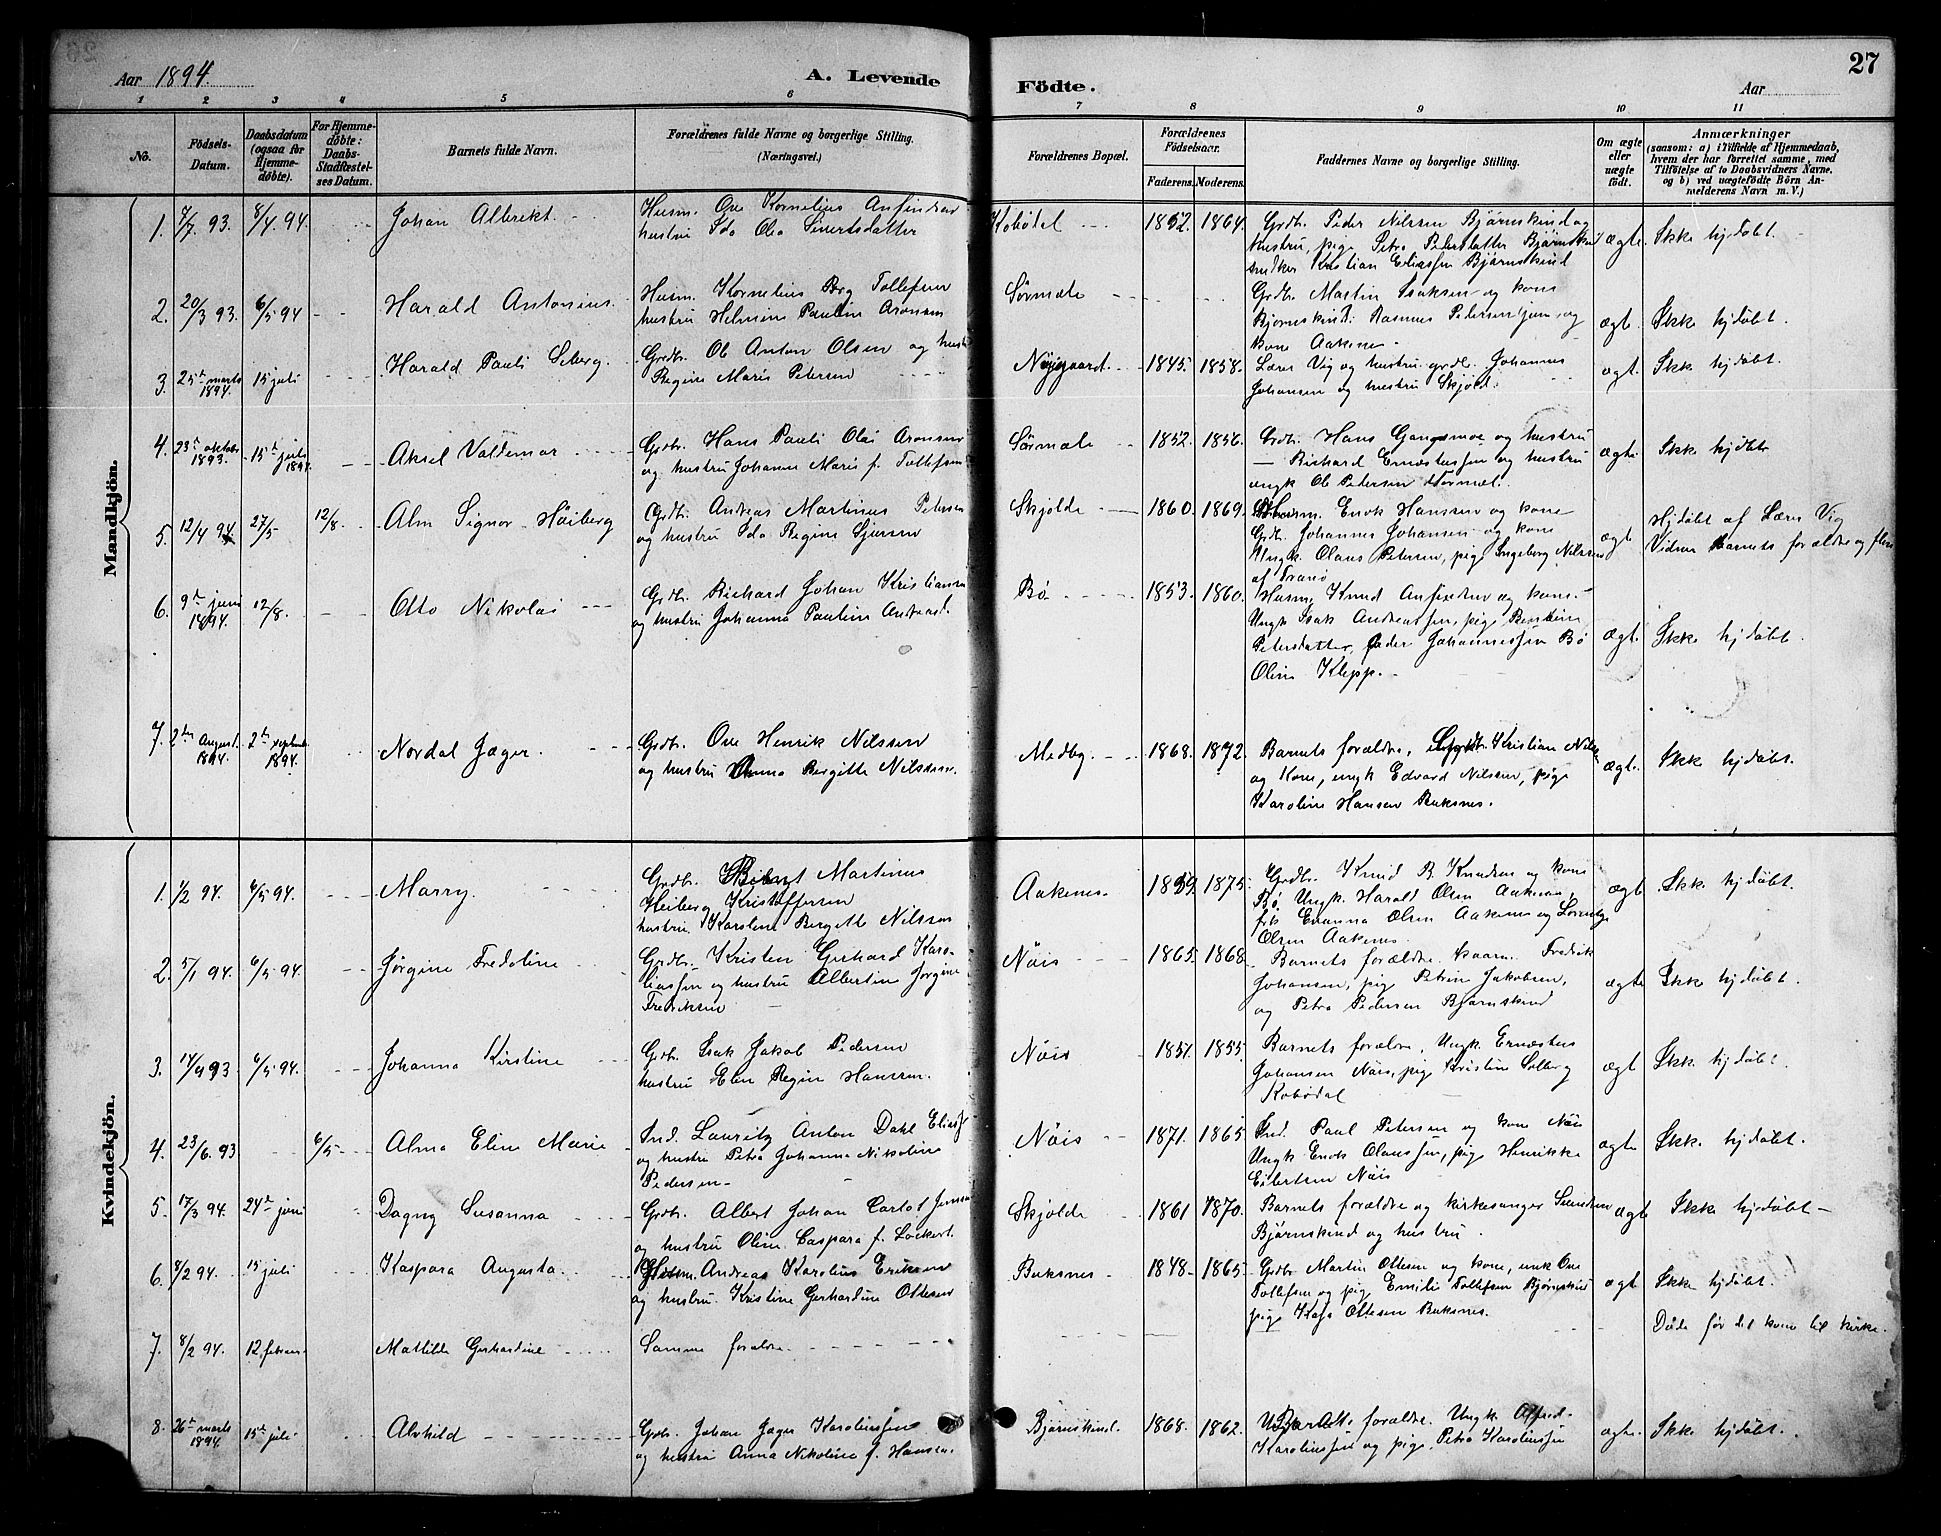 Aar 1894.
A. Levende
Födte.
Aar
27
1 2 3 4 5 6 7 8 9 10 11
No.
Födsels-
Datum.
Daabsdatum
(ogsaa for
Hjemme-
döbte).
For Hjemme-
döbte:
Daabs-
Stadfæstel-
ses Datum.
Barnets fulde Navn.
Forældrenes fulde Navne og borgerlige Stilling.
(Næringsvei.)
Forældrenes Bopæl.
Forældrenes
Födselsaar.
Faderens. Moderens.
Faddernes Navne og borgerlige Stilling.
Om ægte
eller
uægte
födt.
Anmærkninger
(saasom: a) i Tilfælde af Hjemmedaab,
hvem der har forrettet samme, med
Tilföielse af to Daabsvidners Navne,
og b) ved uægtefödte Börn An-
melderens Navn m. V.)
Mandkjön.
1. 7/7 93. 8/4 94. Johan Albrikt
Husm. Ove Kornelius Anfindsen
hustru Ida Olea Sivertsdatter
Kobødel 1852. 1864.
Grdb. Peder Nilssen Bjørnskind og
hustru, pige Petra Pedersdatter Bjørnskind
snedker Kristian Eliassen Bjørnskind
ægte. Ikke hjdøbt.
2. 20/3 93. 6/5 94 Harald Antonius
Husm. Kornelius Berg Tollefsen
hustru Helmine Pauline Aronsen
Sørmæle
Grdb. Martin Isaksen og kone
Bjørnskind. Rasmus Petersen jun. og
kone Aakenes
ægte Ikke hjdøbt.
3. 25de marts 1894. 15 juli Harald Pauli Seberg.
Grdb. Ole Anton Olsen og hustru
Regine Marie Petersen
Nøisgaard 1845. 1858.
Lærer Vig og hustru. grdb. Johannes
Johansen og hustru Skjold.
ægt. Ikke hjdøbt.
4. 23de oktober 1893. 15de juli 1894 Aksel Valdemar
Grdb. Hans Pauli Olai Aronsen
og hustru Johanna Marie f. Tollefsen
Sørmæle 1852. 1856.
Grdb. Hans Gangsmoe og hustru
Richard Ernæstussen og hustru
ungk Ole Petersen Sørmæl.
ægte Ikke hjdøbt
5. 12/4 94 27/5 12/8. Alm Signor Høiberg
Grdb. Andreas Martinus Petersen
og hustru Ida Regine Sjursen
Skjolde 1860. 1869.
Husm. Enok Hanssen og kone
Grdb. Johannes Johansen og kone
Ungk. Olaus Petersen, pige Ingeborg Nilssen
af Tranø
ægte Hjdøbt af Lærer Vig
Vidner Barnets forældre og flere
6. 9de juni 1894. 12/8. Otto Nikolai
Grdb. Richard Johan Kristiansen
og hustru Johanna Pauline Andreas.
Bø 1853. 1860.
Husm. Knud Anfindsen og kone
Ungk Isak Andreassen, pige Bentine
Petersdatter, Peder Johannessen Bø
Oline Klepp.
ægt. Ikke hjdøbt.
7. 2den August. 1894. 2den septembr 1894. Nordal Jæger.
Grdb. Ove Henrik Nilssen
og hustru Anna Bergitte Nilssen.
Medby. 1868. 1872.
Barnets forældre, Grdb. Kristian Nilsen
og Kone, ungk Edvard Nilssen, pige
Karoline Hansen Buksnes.
ægte. Ikke hjdøbt.
Kvindekjön.
1. 1/2 94. 6/5 94. Marry.
Grdb. Bernt Martinus
Heiberg Kristoffersen
hustru Karoline Bergitte Nilsson
Aakenes. 1859. 1875.
Grdb. Knud B. Knudsen og kone
Bø. Ungk. Harald Olsen Aakenes,
frk Evanna Olsen Aakenes og Lorentze
Olsen Aakenes.
ægte Ikke hjdøbt.
2. 5/1 94. 6/5 94. Jørgine Fredoline
Grdb. Kristen Gerhard Karo-
liussen og hustru Albertine Jørgine
Fredriksen
Nöis 1865. 1868.
Barnets forældre. Fredrik
Johansen, pige Petrine Jakobsen,
og Petra Pedersen Bjørnskind
ægte Ikke hjdøbt.
3. 6/5 94. Johanna Kirstine
Grdb. Isak Jakob Pedersen
hustru Elen Regine Hanssen.
Nöis 1851. 1855.
Barnets forældre, Ungk. Ernæstus
Johansen Nöis, pige Kristine Solberg
Kobødal
ægt Ikke hjdøbt.
4. 23/6. 93 6/5 Alma Elin Marie
Ind. Lauritz Anton Dahl Eliass
og hustru Petra Johanna Nikoline
Pedersen
Nöis 1871. 1865.
Ind. Paul Petersen og kone Nöis
Ungk Enok Olaussen, pige Henrikke
Eilertsen Nöis
ægte Ikke hjdøbt.
5. 17/3 94. 24de juni Dagny Susanna
Grdb. Albert Johan Carlot Jensen
og hustru Oline Caspara f. Lockert.
Skjolde 1861 1870.
Barnets forældre og kirkesanger
Bjørnskind og hustru.
ægte Ikke hjdøbt
6. 8/2 94. 15 juli Kaspara Augusta.
Husm. Andreas Karolius Eriksen
og hustru. Kristine Gerhardine Ottesen
Buksnes 1848. 1865.
Grdb Martin Ottesen og kone, unk Ove
Tollefsen og pige Emilie Tollefsen Bjørnskind
pige Kaja Ottesen Buksnes.
ægt Ikke hjdøbt.
7. 8/2 94. 12. februar Mathilde Gerhardine
Samme forældre.
Døde før det kom til kirke.
8. 26de marts 1894. 15de juli. Alvhild
Grdb. Johan Jæger Karoliussen
og hustru Anna Nikoline f. Hansen.
Bjørnskind. 1868. 1862.
Barnets forældre. Ungk. Alfred
Karoliussen og pige. Petra Karoliussen
ægte. Ikke hjdøbt.